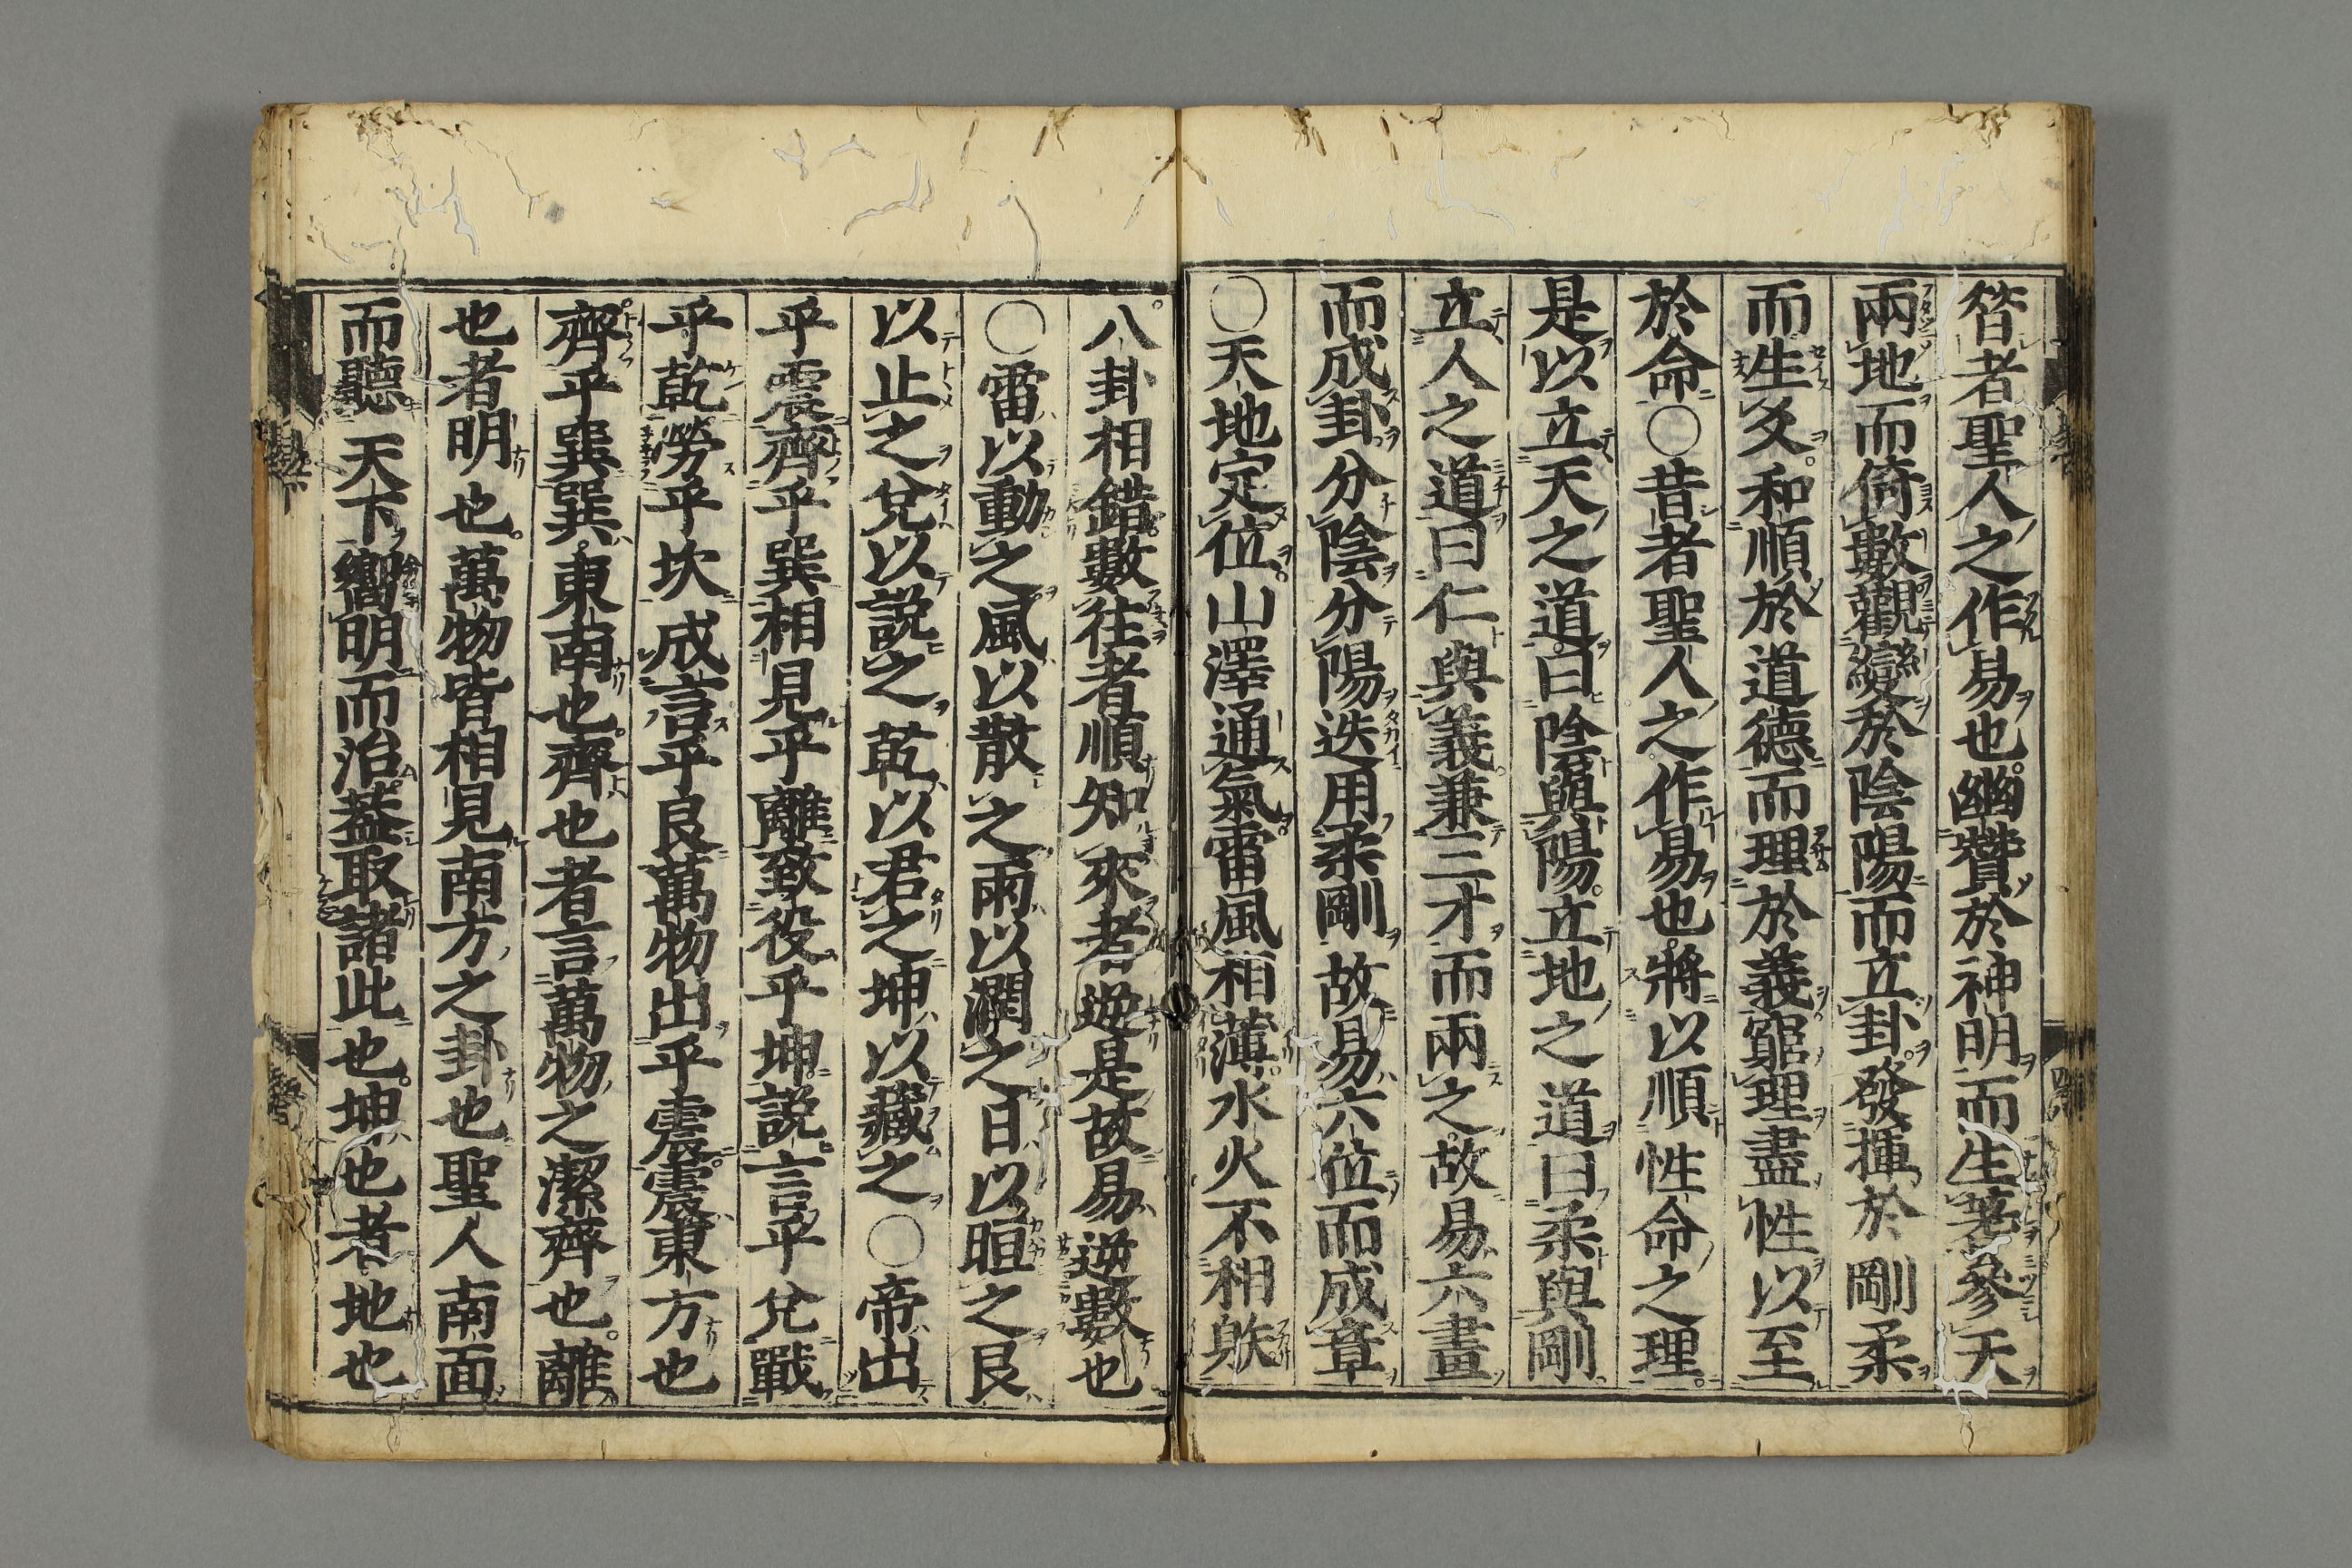 昝者聖人之作易也幽贊於神明而生蓍參天
兩地而倚數觀變於陰陽而立卦發揮於剛柔
而生爻和順於道德而理於義窮理盡性以至
於命○昔者聖人之作易也將以順性命之理
是以立天之道曰陰與陽立地之道曰柔與剛
立人之道曰仁與義兼三才而兩之故易六畫
而成卦分陰分陽迭用柔剛故易六位而成章
○天地定位山澤通氣雷風相薄水火不相射
八卦相錯數往者順知來者逆是故易逆數也
○雷以動之風以散之雨以潤之日以晅之艮
以止之兌以說之乾以君之坤以藏之○帝出
乎震齊乎巽相見乎離致役乎坤說言乎兌戰
乎乾勞乎坎成言乎艮萬物出乎震震東方也
齊乎巽巽東南也齊也者言萬物之潔齊也離
也者明也萬物皆相見南方之卦也聖人南面
而聽天下嚮明而治蓋取諸此也坤也者地也